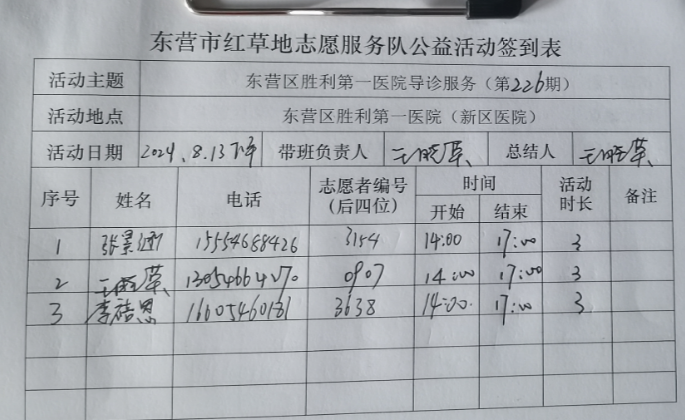 东营市红草地志愿服务队公益活动签到表
活动主题 东营区胜利第一医院导诊服务（第226期）
活动地点 东营区胜利第一医院（新区医院）
活动日期 2024.8.13下午 带班负责人 王晓荣 总结人 王晓荣
序号 姓名 电话 志愿者编号（后四位） 时间 开始 结束 活动时长 备注
1 张景通 15554688426 3154 14:00 17:00 3
2 王晓荣 13054664270 0907 14:00 17:00 3
3 李喆恩 16605460181 3638 14:00 17:00 3